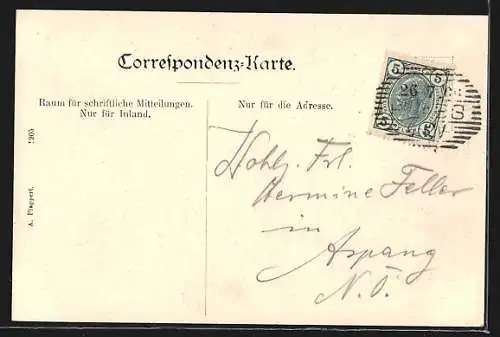 Correspondenz-Karte.
Raum für schriftliche Mitteilungen.
Nur für Inland.
Nur für die Adresse.
5 5
26 7
5 5
Hermine Feller
in
Aspang
N. Ö.
A. Pluppert. 1905